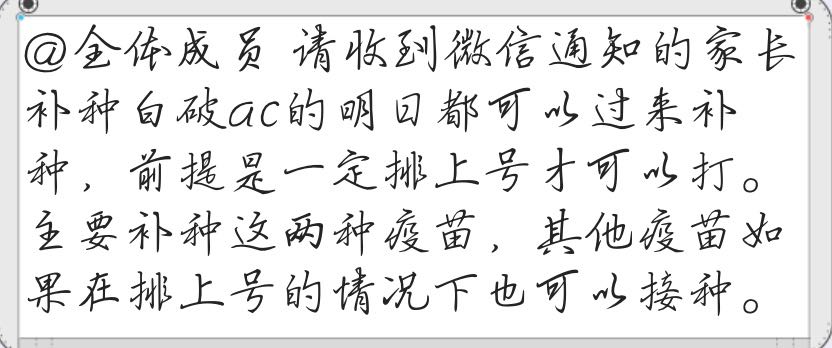 @全体成员 请收到微信通知的家长
补种白破ac的明日都可以过来补
种，前提是一定排上号才可以打。
主要补种这两种疫苗，其他疫苗如
果在排上号的情况下也可以接种。